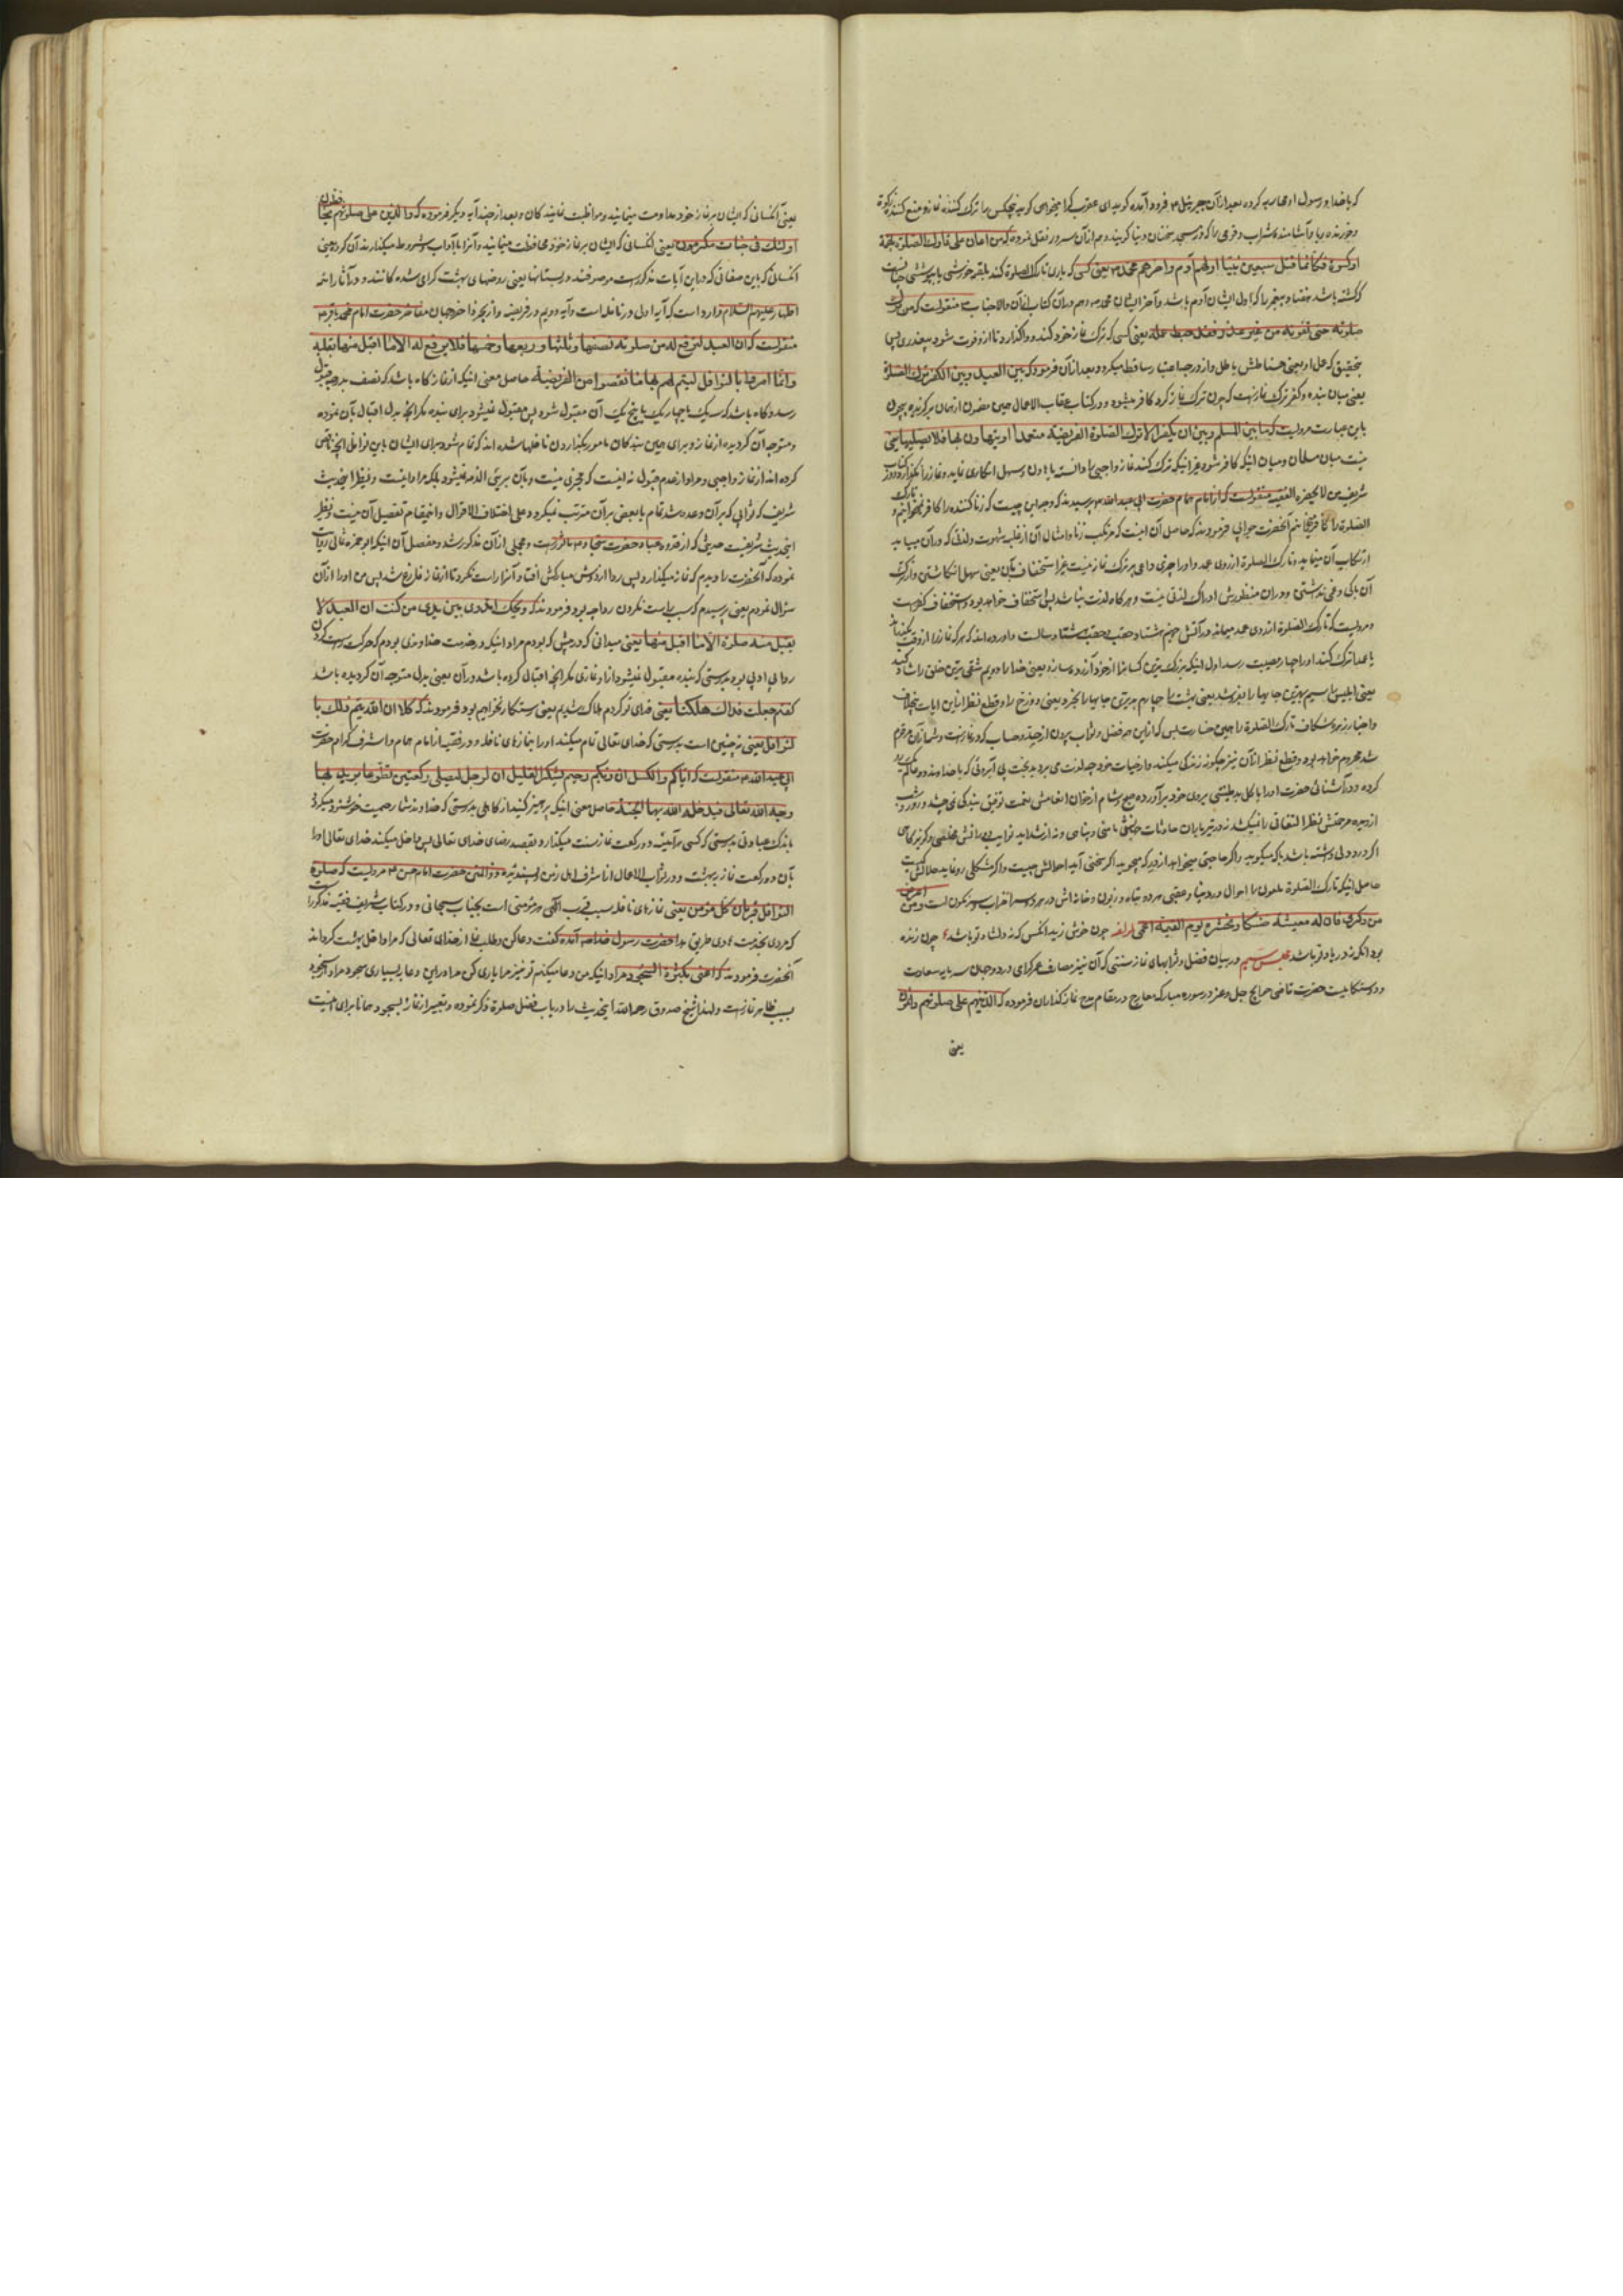 که با خدا و رسول او محاربه کرده بعد از آن جبرئیل ۴ فرود آمده گوید ای عقرب کرا میخواهی گوید پنج کس را ترک کننده نماز و منع کننده زکوة
و خورنده ربا و آشامنده شراب و قومی را که در مسجد سخنان دنیا گویند و هم از آن سرور نقل نموده که من اعان علی تارک الصلوة بلقمة
او کسوة فکانما قتل سبعین نبیا اولهم آدم و اخرهم محمد ۴ یعنی کسی که یاری تارک الصلوة کند بلقمه خورشی یا پوششی چنانست
که کشته باشد هفتاد پیغمبر را که اول ایشان آدم باشد و آخر ایشان محمد ۴ و هم در آن کتاب از آن والاجناب ۴ منقولست که من ترک
صلوته حتی تفوته من غیر عذر فقد حبط عمله یعنی کسی که ترک نماز خود کند و واگذارد تا از او فوت شود بیعذری پس
بتحقیق که عمل او یعنی حسناتش باطل و از درجه اعتبار ساقط میگردد و بعد از آن فرمود که بین العبد و بین الکفر ترک الصلوة
یعنی میان بنده و کفر ترک نمازست که چون ترک نماز کرد کافر میشود و در کتاب عقاب الاعمال همین مضمون از همان برگزیده بیچون
باین عبارت مرویست که ما بین المسلم و بین ان یکفر الا ترک الصلوة الفریضة متعمدا او یتهاون بها فلا یصلیها یعنی
نیست میان مسلمان و میان اینکه کافر شود غیر اینکه ترک کند نماز واجبی را دانسته یا تهاون و سهل انگاری نماید و نماز را نگذارد و در کتاب
شریف من لا یحضره الفقیه منقولست که از امام همام حضرت ابی عبد الله ۴ پرسیدند که وجه این چیست که زنا کننده را کافر نمیخوانیم و تارک
الصلوة را کافر میخوانیم آنحضرت جوابی فرمودند که حاصل آن اینست که مرتکب زنا و امثال آن از غلبه شهوت و لذتی که در آن مییابد
ارتکاب آن مینماید و تارک الصلوة از روی عمد و او را چیزی داعی بر ترک نماز نیست غیر استخفاف بآن یعنی سهل انگاشتن و از ترک
آن باکی و غمی نداشتن و در آن منظورش ادراک لذتی نیست و هر گاه لذت نباشد پس استخفاف خواهد بود و استخفاف کفرست
و مرویست که تارک الصلوة از روی عمد میماند در آتش جهنم هشتاد حقب و حقب هشتاد سالست و وارد شده اند که هر که نماز را از وقت بگذراند
یا عمدا ترک کند او را چهار مصیبت رسد اول اینکه بزرگ ترین کسانرا از خود آزرده سازد یعنی خدا را دویم شقی ترین خلق را شاد کند
یعنی ابلیس را سیم بهترین جایها را بفروشد یعنی بهشت را چهارم بدترین جایها را بخرد یعنی دوزخ را و قطع نظر از این ایات
و اخبار تارک الصلوة را همین خسارت بس که از این همه فضل و ثواب بیرون از حد و حساب که در نمازست و شما از آن
شد محروم خواهد بود و قطع نظر از آن نیز چگونه زندگی میکند و از حیات خود چه لذت می برد بدبخت بی آبروئی که با خداوند
کرده و در آشنائی حضرت او را بالکل بر طینتی بروی خود برآورده صبح و شام از خوان انعامش نعمت توفیق بندگی نمی چشد و روز و شب
از دیده مرحمتش نظر التفاتی را نمیکشد نه در تیرباران حادثات جهانش مامنی و پناهی و نه از شداید نوایب دورانش مخلصی و گریزگاهی
اگر درد دلی داشته باشد با که میگوید و اگر حاجتی میخواهد از درگه که میجوید اگر سختی آید احوالش چیست و اگر مشکلی رو نماید حلالش کیست
حاصل اینکه تارک الصلوة ملعون را احوال در دنیا و عقبی هر دو تباه و زبون و خانه اش در هر دو سرا خراب و سرنگون است و من اعرض
عن ذکری فان له معیشة ضنکا و نحشره یوم القیمة اعمی لمؤلفه چون خوش زید آنکس که نه دلشاد تو باشد ۴ چون زنده
بود آنکه نه در یاد تو باشد مجلس سیم در بیان فضل و ثوابهای نماز سنتی که آن نیز مصارف عمر گرامی در دو جهان سرمایه سعادت
و دوستکامیست حضرت قاضی حوایج جل و عز در سوره مبارکه معارج در مقام مدح نماز گذاران فرموده که الذین هم علی صلوتهم دائمون
یعنی
یعنی آنکسانی که ایشان بر نماز خود مداومت مینمایند و مواظبت نمایندگان و بعد از چند آیه دیگر فرموده که والذین هم علی صلوتهم یحافظون
اولئک فی جنات مکرمون یعنی آنکسانی که ایشان بر نماز خود محافظت مینمایند و آنرا با آداب و شروط میگذارند آن گروه یعنی
آنکسانی که باین صفاتی که در این آیات مذکورست موصوفند در بستانها یعنی روضهای بهشت گرامی شده گانند و در آثار ائمه
اطهار علیهم السلام وارد است که آیه اولی در نافله است و آیه دویم در فریضه و از بحر ذاخر جهان مفاخر حضرت امام محمد باقر ۴
منقولست که ان العبد لترفع له من صلوته نصفها و ثلثها و ربعها و خمسها فلا یرفع له الا ما اقبل منها بقلبه
و انما امرنا بالنوافل لیتم لهم بها ما نقصوا من الفریضة حاصل معنی اینکه از نماز گاه باشد که نصف بدرجه قبول
رسد و گاه باشد که سه یک یا چهار یک یا پنج یک آن مقبول شود پس مقبول نمیشود برای بنده مگر آنچه بدل اقبال بآن نموده
و متوجه آن گردیده از نماز و برای همین بندگان مامور بگذاردن نافلها شده اند که تمام شود برای ایشان باین نوافل آنچه ناقص
کرده اند از نماز واجبی و مراد از عدم قبول نه اینست که مجزی نیست و بآن بریئ الذمه نمیشود بلکه مراد اینست و نیظر ایحدیث
شریف که ثوابی که بر آن وعده شد تمام یا بعض بر آن مترتب نمیگردد و علی اختلاف الاقوال و اینمقام تفصیل آن نیست و نظیر
اینحدیث شریفست حدیثی که از قدوه عباد حضرت سجاد ۴ ماثورست و مجملی از آن مذکور شد و مفصل آن اینکه ابو حمزه ثمالی روایت
نموده که آنحضرت را دیدم که نماز میگذارد پس ردا از دوش مبارکش افتاد و آنرا راست نکرد تا از نماز فارغ شد پس من او را از آن
سؤال نمودم یعنی پرسیدم که سبب راست نکردن ردا چه بود فرمودند که ویحک اتدری بین یدی من کنت ان العبد لا
یقبل منه صلوة الا ما اقبل منها یعنی میدانی که در پیش که بودم مراد اینکه در خدمت خداوندی بودم که حرکت راست کردن
ردا بی ادبی بود بدرستی که بنده مقبول نمیشود از او نمازی مگر آنچه اقبال کرده باشد در آن یعنی بدل متوجه آن گردیده باشد
گفتم جعلت فداک هلکنا یعنی فدای تو گردم هلاک شدیم یعنی رستگار نخواهیم بود فرمودند که کلا ان الله یتم ذلک با
لنوافل یعنی نه چنین است بدرستی که خدای تعالی تمام میکند او را بنمازهای نافله و در فقیه از امام همام و اشرف کرام حضرت
ابی عبد الله ۴ منقولست که ایاکم و الکسل ان ربکم رحیم یشکر القلیل ان الرجل لیصلی رکعتین تطوعا یرید بهما
وجه الله تعالی فیدخله الله بهما الجنة حاصل معنی اینکه پرهیز کنید از کاهلی بدرستی که خداوند شما رحیمست خوشنود میگردد
باندک عبادتی بدرستی که کسی هر آینه دو رکعت نماز سنت میگذارد و بقصد رضای خدای تعالی پس داخل میکند خدای تعالی او را
بآن دو رکعت نماز ببهشت و در ثواب الاعمال از اشرف اهل زمن ابو الحسن حضرت امام حسن ۴ مرویست که صلوة
النوافل قربان کل مؤمن یعنی نمازهای نافله سبب قرب الهی هر مؤمنی است بجناب سبحانی و در کتاب شریف فقیه مذکورست
که مردی بخدمت هادی طریق هدا حضرت رسول خدا ص آمده گفت دعا کن و طلب نما از خدای تعالی که مرا داخل بهشت گرداند
آنحضرت فرمودند که اعنی بکثرة السجود مراد اینکه من دعا میکنم تو نیز مرا یاری کن مرا در این دعا ببسیاری سجود و مراد از سجود
بحسب ظاهر نمازست و لهذا شیخ صدوق رحمه الله اینحدیث را در باب فضل صلوة ذکر نموده و تعبیر از نماز بسجود همانا برای اینست